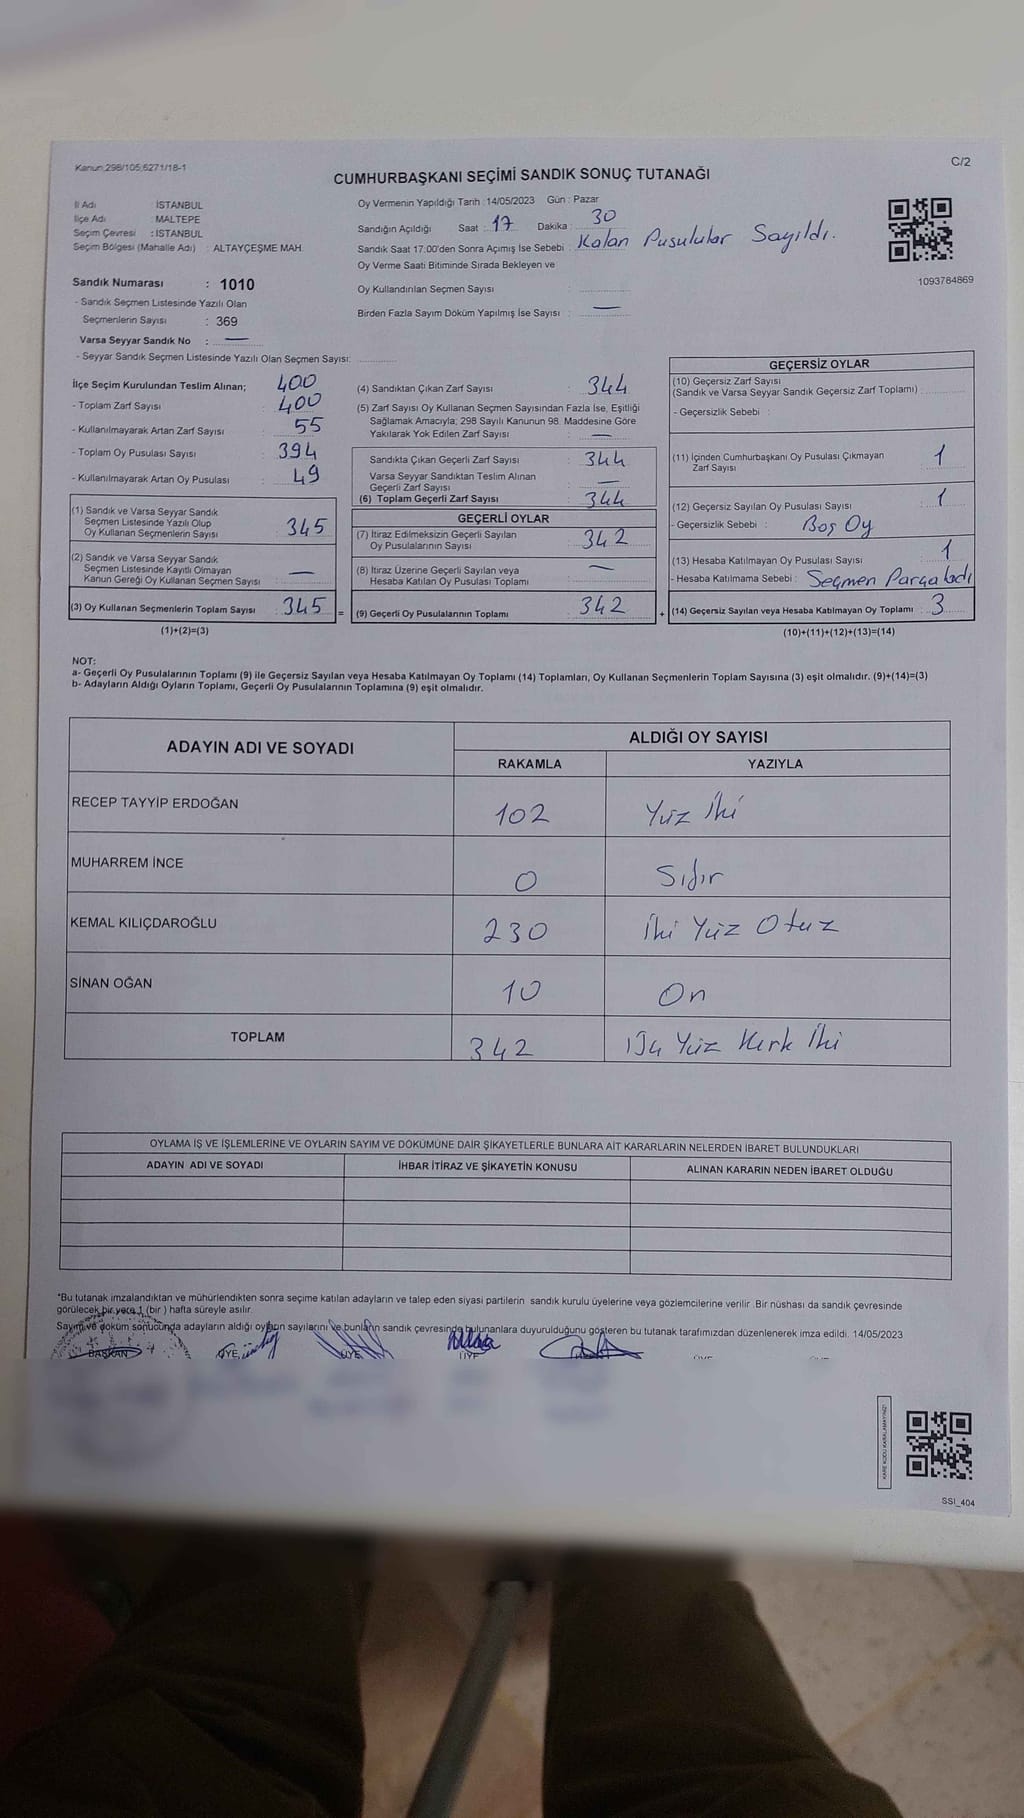 Kanun:298/105,6271/18-1
C/2
CUMHURBAŞKANI SEÇİMİ SANDIK SONUÇ TUTANAĞI
İl Adı İSTANBUL
İlçe Adı MALTEPE
Seçim Çevresi : İSTANBUL
Seçim Bölgesi (Mahalle Adı) : ALTAYÇEŞME MAH.
Oy Vermenin Yapıldığı Tarih : 14/05/2023 Gün : Pazar
Sandığın Açıldığı Saat : 17 Dakika : 30
Sandık Saat 17:00'den Sonra Açımış İse Sebebi : Kalan Pusulular Sayıldı.
Oy Verme Saati Bitiminde Sırada Bekleyen ve
Oy Kullandırılan Seçmen Sayısı :
Birden Fazla Sayım Döküm Yapılmış İse Sayısı : —
1093784869
Sandık Numarası : 1010
- Sandık Seçmen Listesinde Yazılı Olan
Seçmenlerin Sayısı : 369
Varsa Seyyar Sandık No : —
- Seyyar Sandık Seçmen Listesinde Yazılı Olan Seçmen Sayısı:
İlçe Seçim Kurulundan Teslim Alınan; 400
- Toplam Zarf Sayısı : 400
- Kullanılmayarak Artan Zarf Sayısı : 55
- Toplam Oy Pusulası Sayısı : 394
- Kullanılmayarak Artan Oy Pusulası : 49
(1) Sandık ve Varsa Seyyar Sandık
Seçmen Listesinde Yazılı Olup
Oy Kullanan Seçmenlerin Sayısı : 345
(2) Sandık ve Varsa Seyyar Sandık
Seçmen Listesinde Kayıtlı Olmayan
Kanun Gereği Oy Kullanan Seçmen Sayısı : —
(3) Oy Kullanan Seçmenlerin Toplam Sayısı : 345
(1)+(2)=(3)
(4) Sandıktan Çıkan Zarf Sayısı : 344
(5) Zarf Sayısı Oy Kullanan Seçmen Sayısından Fazla İse, Eşitliği
Sağlamak Amacıyla; 298 Sayılı Kanunun 98. Maddesine Göre
Yakılarak Yok Edilen Zarf Sayısı : —
Sandıkta Çıkan Geçerli Zarf Sayısı : 344
Varsa Seyyar Sandıktan Teslim Alınan
Geçerli Zarf Sayısı : —
(6) Toplam Geçerli Zarf Sayısı : 344
GEÇERLİ OYLAR
(7) İtiraz Edilmeksizin Geçerli Sayılan
Oy Pusulalarının Sayısı : 342
(8) İtiraz Üzerine Geçerli Sayılan veya
Hesaba Katılan Oy Pusulası Toplamı : —
= (9) Geçerli Oy Pusulalarının Toplamı : 342
GEÇERSİZ OYLAR
(10) Geçersiz Zarf Sayısı
(Sandık ve Varsa Seyyar Sandık Geçersiz Zarf Toplamı) :
- Geçersizlik Sebebi :
(11) İçinden Cumhurbaşkanı Oy Pusulası Çıkmayan
Zarf Sayısı : 1
(12) Geçersiz Sayılan Oy Pusulası Sayısı : 1
- Geçersizlik Sebebi : Boş Oy
(13) Hesaba Katılmayan Oy Pusulası Sayısı : 1
- Hesaba Katılmama Sebebi : Seçmen Parçaladı
+ (14) Geçersiz Sayılan veya Hesaba Katılmayan Oy Toplamı : 3
(10)+(11)+(12)+(13)=(14)
NOT:
a- Geçerli Oy Pusulalarının Toplamı (9) ile Geçersiz Sayılan veya Hesaba Katılmayan Oy Toplamı (14) Toplamları, Oy Kullanan Seçmenlerin Toplam Sayısına (3) eşit olmalıdır. (9)+(14)=(3)
b- Adayların Aldığı Oyların Toplamı, Geçerli Oy Pusulalarının Toplamına (9) eşit olmalıdır.
ADAYIN ADI VE SOYADI ALDIĞI OY SAYISI
RAKAMLA YAZIYLA
RECEP TAYYİP ERDOĞAN 102 Yüz İki
MUHARREM İNCE 0 Sıfır
KEMAL KILIÇDAROĞLU 230 İki Yüz Otuz
SİNAN OĞAN 10 On
TOPLAM 342 Üç Yüz Kırk İki
OYLAMA İŞ VE İŞLEMLERİNE VE OYLARIN SAYIM VE DÖKÜMÜNE DAİR ŞİKAYETLERLE BUNLARA AİT KARARLARIN NELERDEN İBARET BULUNDUKLARI
ADAYIN ADI VE SOYADI İHBAR İTİRAZ VE ŞİKAYETİN KONUSU ALINAN KARARIN NEDEN İBARET OLDUĞU
*Bu tutanak imzalandıktan ve mühürlendikten sonra seçime katılan adayların ve talep eden siyasi partilerin sandık kurulu üyelerine veya gözlemcilerine verilir. Bir nüshası da sandık çevresinde
görülecek bir yere 1 (bir ) hafta süreyle asılır.
Sayım ve döküm sonucunda adayların aldığı oyların sayılarını ve bunların sandık çevresinde bulunanlara duyurulduğunu gösteren bu tutanak tarafımızdan düzenlenerek imza edildi. 14/05/2023
BAŞKAN ÜYE ÜYE ÜYE
KARE KODU KARALAMAYINIZ!
SSI_404